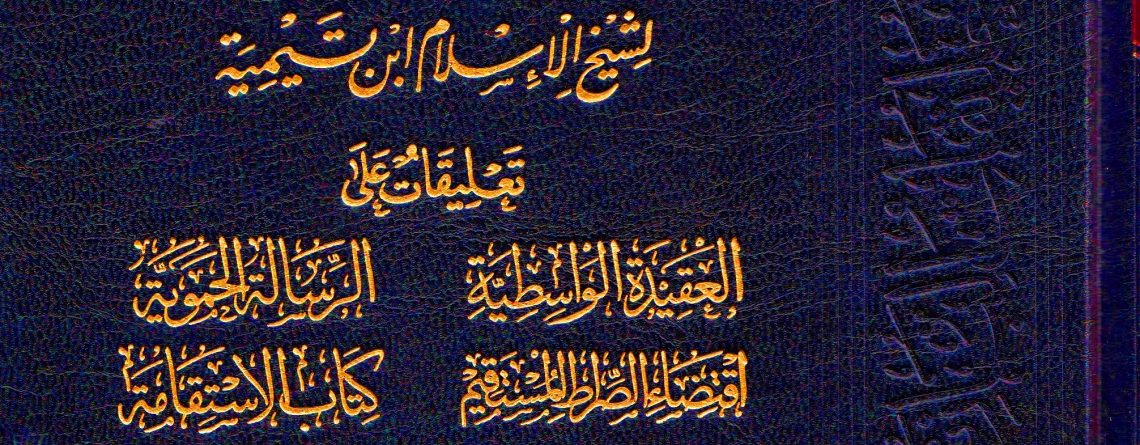 لِشَيْخِ الْإِسْلَامِ ابْنِ تَيْمِيَّة
تَعْلِيقَاتٌ عَلَى
العَقِيْدَةِ الوَاسِطِيَّةِ الرِّسَالَةِ الحَمَوِيَّةِ
اقْتِضَاءِ الصِّرَاطِ المُسْتَقِيْمِ كِتَابِ الاسْتِقَامَةِ